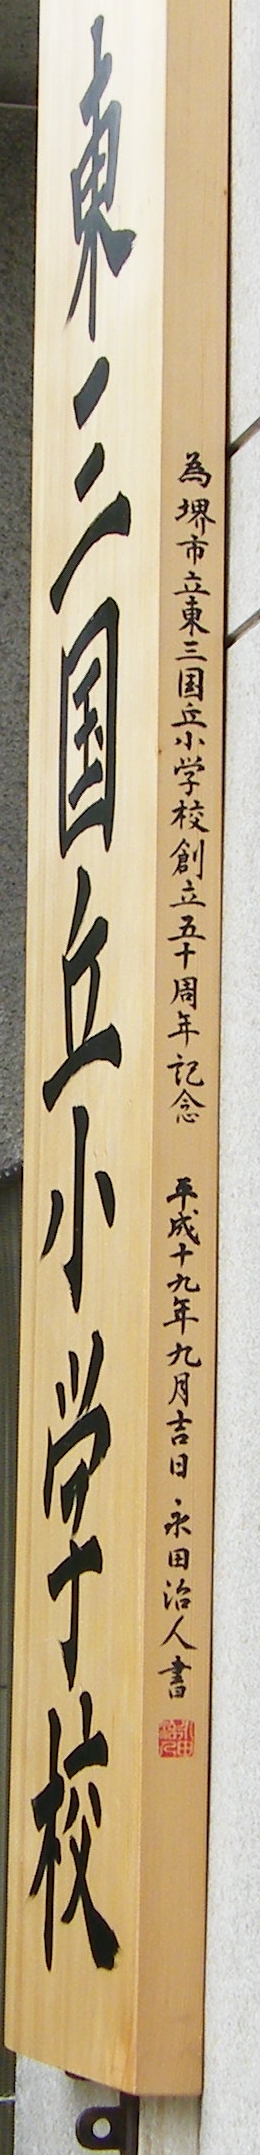 東三国丘小学校
為堺市立東三国丘小学校創立五十周年記念 平成十九年九月吉日 永田治人書